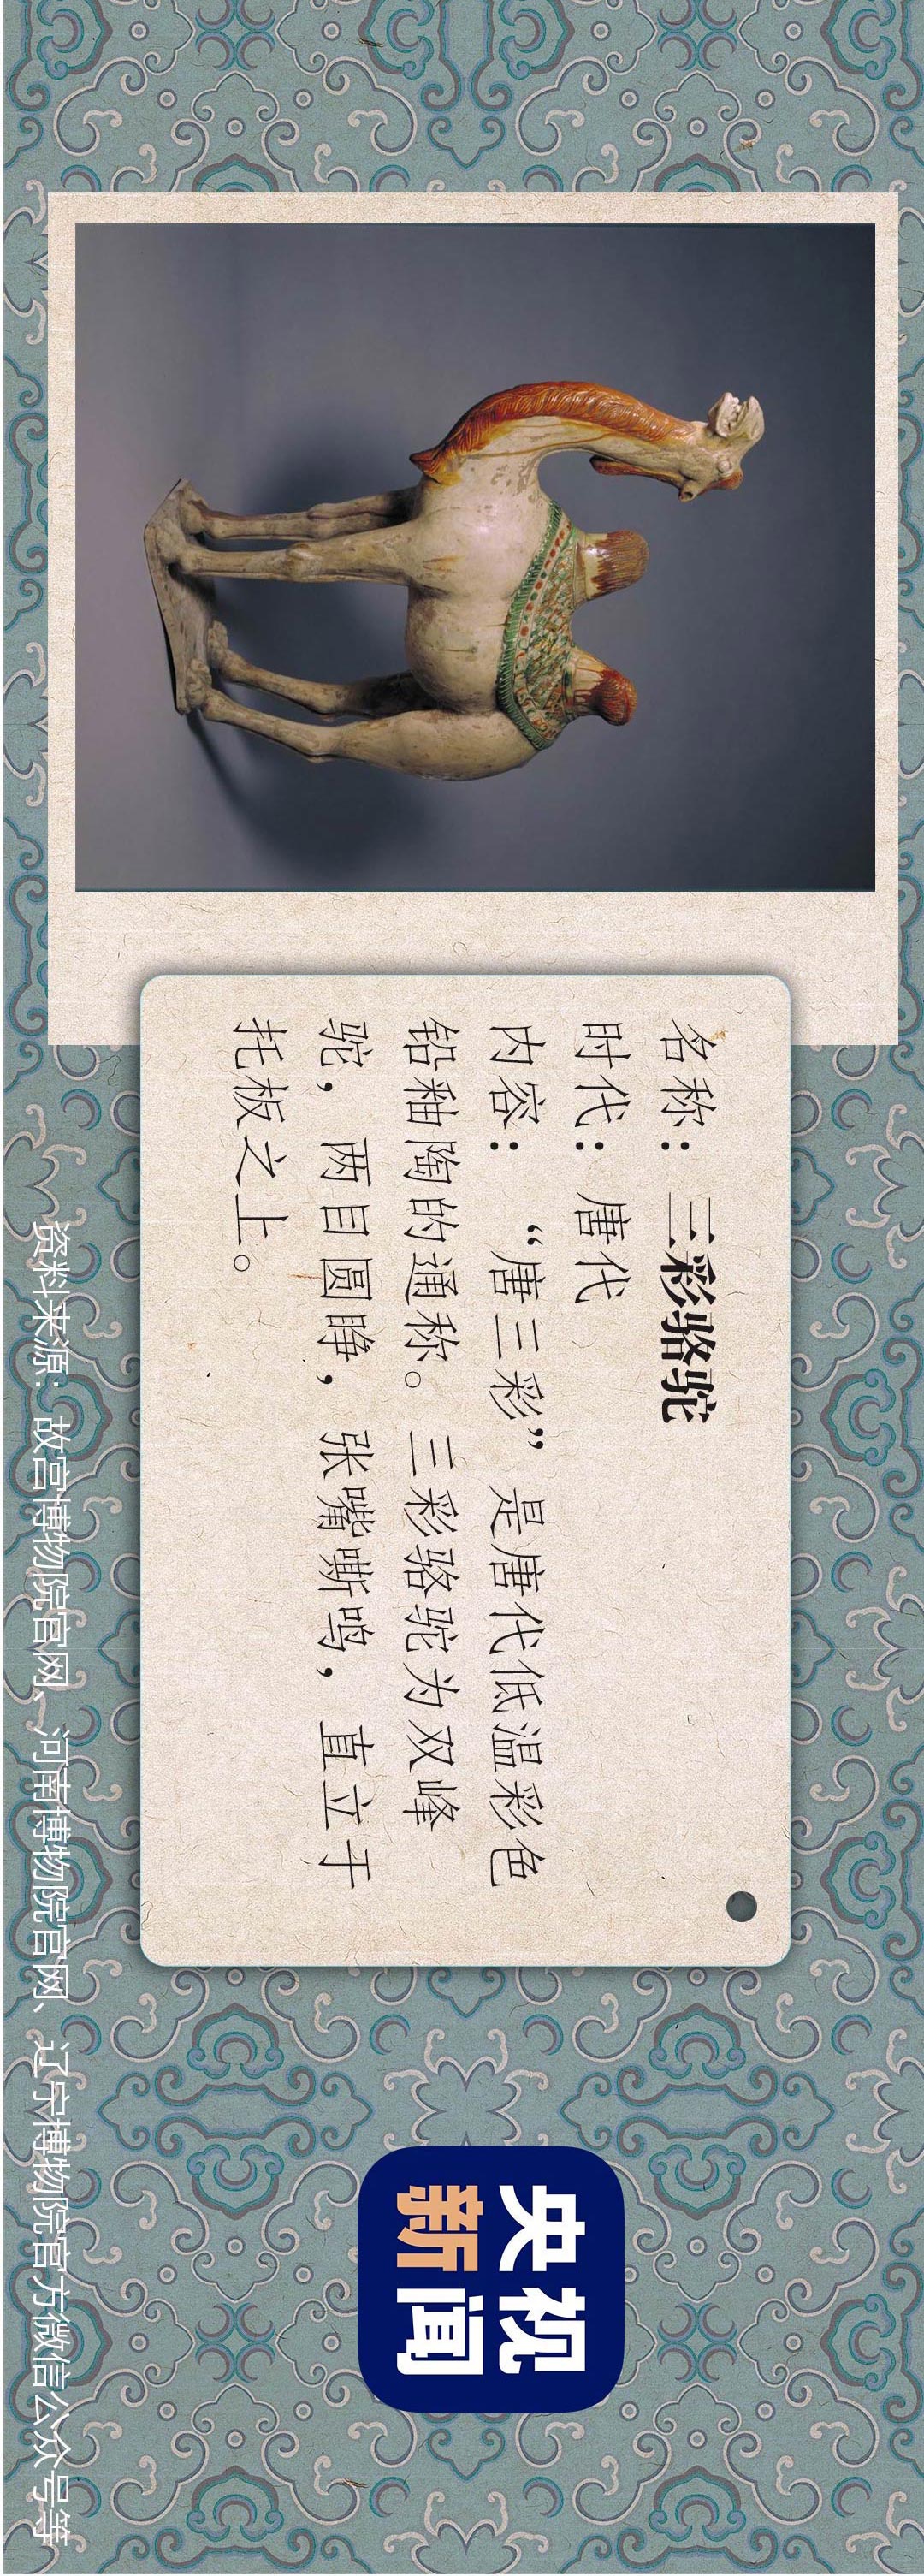 名称：三彩骆驼
时代：唐代
内容：“唐三彩”是唐代低温彩色
铅釉陶的通称。三彩骆驼为双峰
驼，两目圆睁，张嘴嘶鸣，直立于
托板之上。
央视
新闻
资料来源：故宫博物院官网、河南博物院官网、辽宁博物院官方微信公众号等